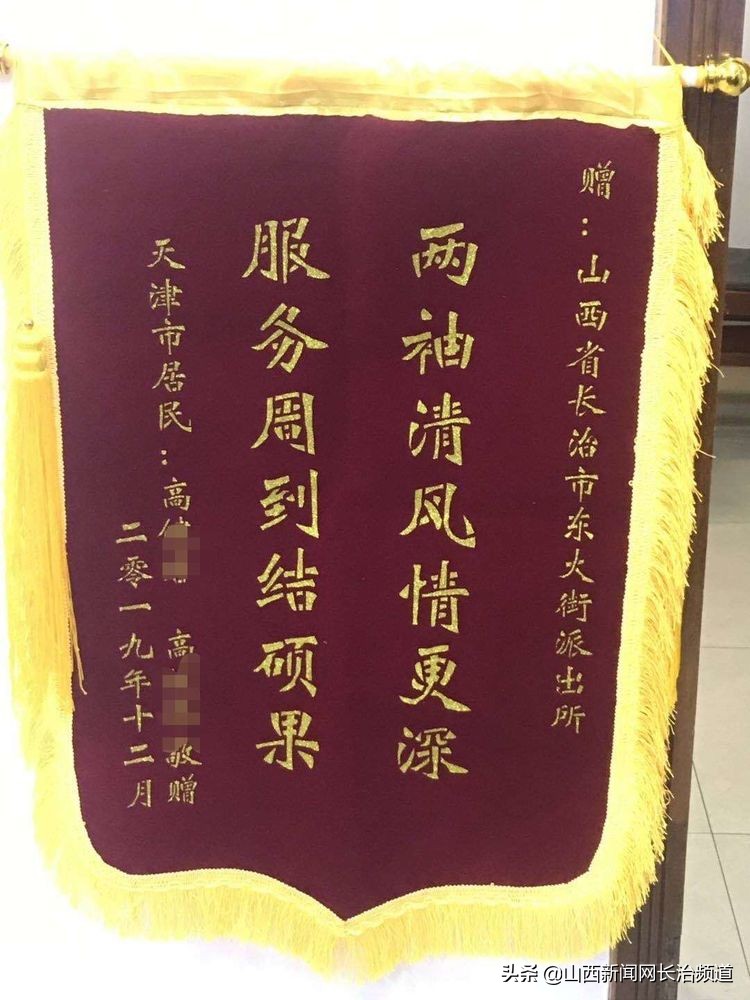 赠：山西省长治市东大街派出所
两袖清风情更深
服务周到结硕果
天津市居民：高 高 敬赠
二零一九年十二月
头条 @山西新闻网长治频道